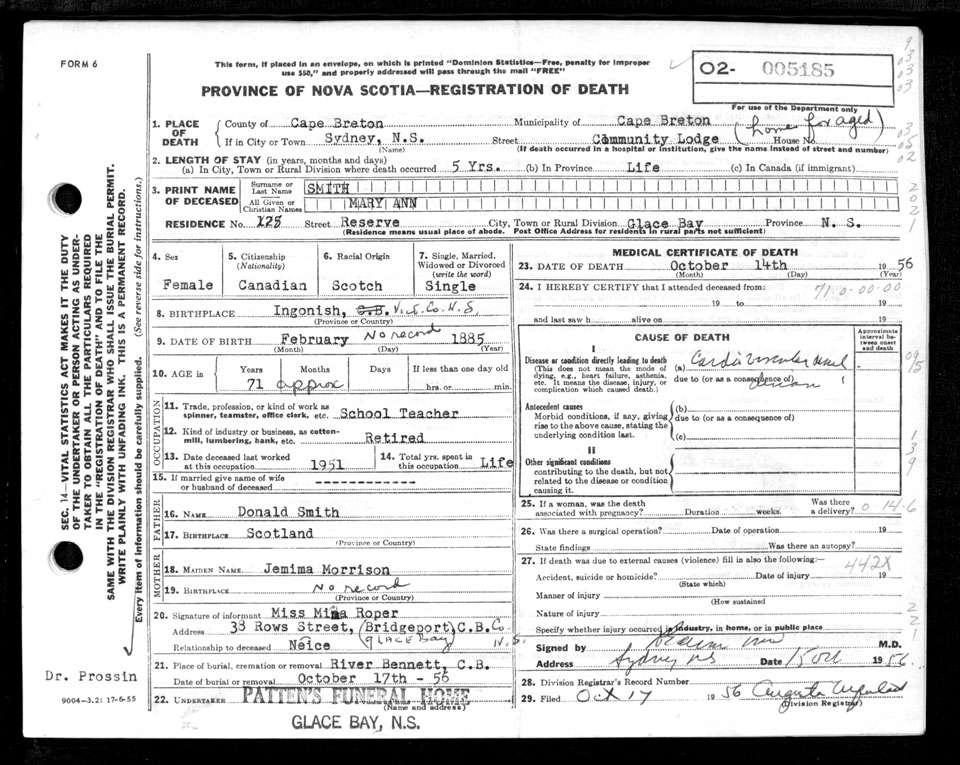 FORM 6
This form, if placed in an envelope, on which is printed "Dominion Statistics—Free, penalty for improper
use $50," and properly addressed will pass through the mail "FREE"
PROVINCE OF NOVA SCOTIA—REGISTRATION OF DEATH
02- 005185
For use of the Department only
1. PLACE OF DEATH
County of Cape Breton Municipality of Cape Breton
If in City or Town Sydney, N.S. Street Community Lodge House No. (home for aged)
(Name) (If death occurred in a hospital or institution, give the name instead of street and number)
2. LENGTH OF STAY (in years, months and days)
(a) In City, Town or Rural Division where death occurred 5 Yrs. (b) In Province Life (c) In Canada (if immigrant)
3. PRINT NAME OF DECEASED
Surname or Last Name SMITH
All Given or Christian Names MARY ANN
RESIDENCE No. 125 Street Reserve City, Town or Rural Division Glace Bay Province N. S.
(Residence means usual place of abode. Post Office Address for residents in rural parts not sufficient)
4. Sex Female
5. Citizenship (Nationality) Canadian
6. Racial Origin Scotch
7. Single, Married, Widowed or Divorced (write the word) Single
8. BIRTHPLACE Ingonish, C.B. Vic. Co. N.S.
(Province or Country)
9. DATE OF BIRTH February No record 1885
(Month) (Day) (Year)
10. AGE in Years Months Days If less than one day old
71 approx hrs. or min.
OCCUPATION
11. Trade, profession, or kind of work as
spinner, teamster, office clerk, etc. School Teacher
12. Kind of industry or business, as cotton-
mill, lumbering, bank, etc. Retired
13. Date deceased last worked
at this occupation 1951
14. Total yrs. spent in
this occupation Life
15. If married give name of wife
or husband of deceased ------------
FATHER
16. NAME Donald Smith
17. BIRTHPLACE Scotland
(Province or Country)
MOTHER
18. MAIDEN NAME Jemima Morrison
19. BIRTHPLACE No record
(Province or Country)
20. Signature of informant Miss Mina Roper
Address 38 Rows Street, (Bridgeport) C.B. Co.
GLACE BAY N.S.
Relationship to deceased Neice
21. Place of burial, cremation or removal River Bennett, C.B.
Date of burial or removal October 17th - 56
22. UNDERTAKER PATTEN'S FUNERAL HOME
(Name and address)
GLACE BAY, N.S.
MEDICAL CERTIFICATE OF DEATH
23. DATE OF DEATH October 14th 1956
(Month) (Day) (Year)
24. I HEREBY CERTIFY that I attended deceased from:
71-0-00-00
19 to 19
and last saw h alive on 19
CAUSE OF DEATH
Approximate interval between onset and death
I
Disease or condition directly leading to death
(This does not mean the mode of
dying, e.g., heart failure, asthenia,
etc. It means the disease, injury, or
complication which caused death.)
(a)
due to (or as a consequence of)
Antecedent causes
Morbid conditions, if any, giving
rise to the above cause, stating the
underlying condition last.
(b)
due to (or as a consequence of)
(c)
II
Other significant conditions
contributing to the death, but not
related to the disease or condition
causing it.
25. If a woman, was the death
associated with pregnancy? Duration weeks. Was there a delivery? 0-14-6
26. Was there a surgical operation? Date of operation 19
State findings Was there an autopsy?
27. If death was due to external causes (violence) fill in also the following:—
442X
Accident, suicide or homicide? Date of injury 19
(State which)
Manner of injury
(How sustained
Nature of injury
Specify whether injury occurred in industry, in home, or in public place
Signed by M.D.
Address Sydney NS Date 15 Oct 1956.
28. Division Registrar's Record Number
29. Filed Oct 17 1956
(Division Registrar)
SEC. 14—VITAL STATISTICS ACT MAKES IT THE DUTY
OF THE UNDERTAKER OR PERSON ACTING AS UNDER-
TAKER TO OBTAIN ALL THE PARTICULARS REQUIRED
IN THE "REGISTRATION OF DEATH" AND TO FILE THE
SAME WITH THE DIVISION REGISTRAR WHO SHALL ISSUE THE BURIAL PERMIT.
WRITE PLAINLY WITH UNFADING INK. THIS IS A PERMANENT RECORD.
Every item of information should be carefully supplied. (See reverse side for instructions.)
Dr. Prossin
9004—3.2: 17-6-55